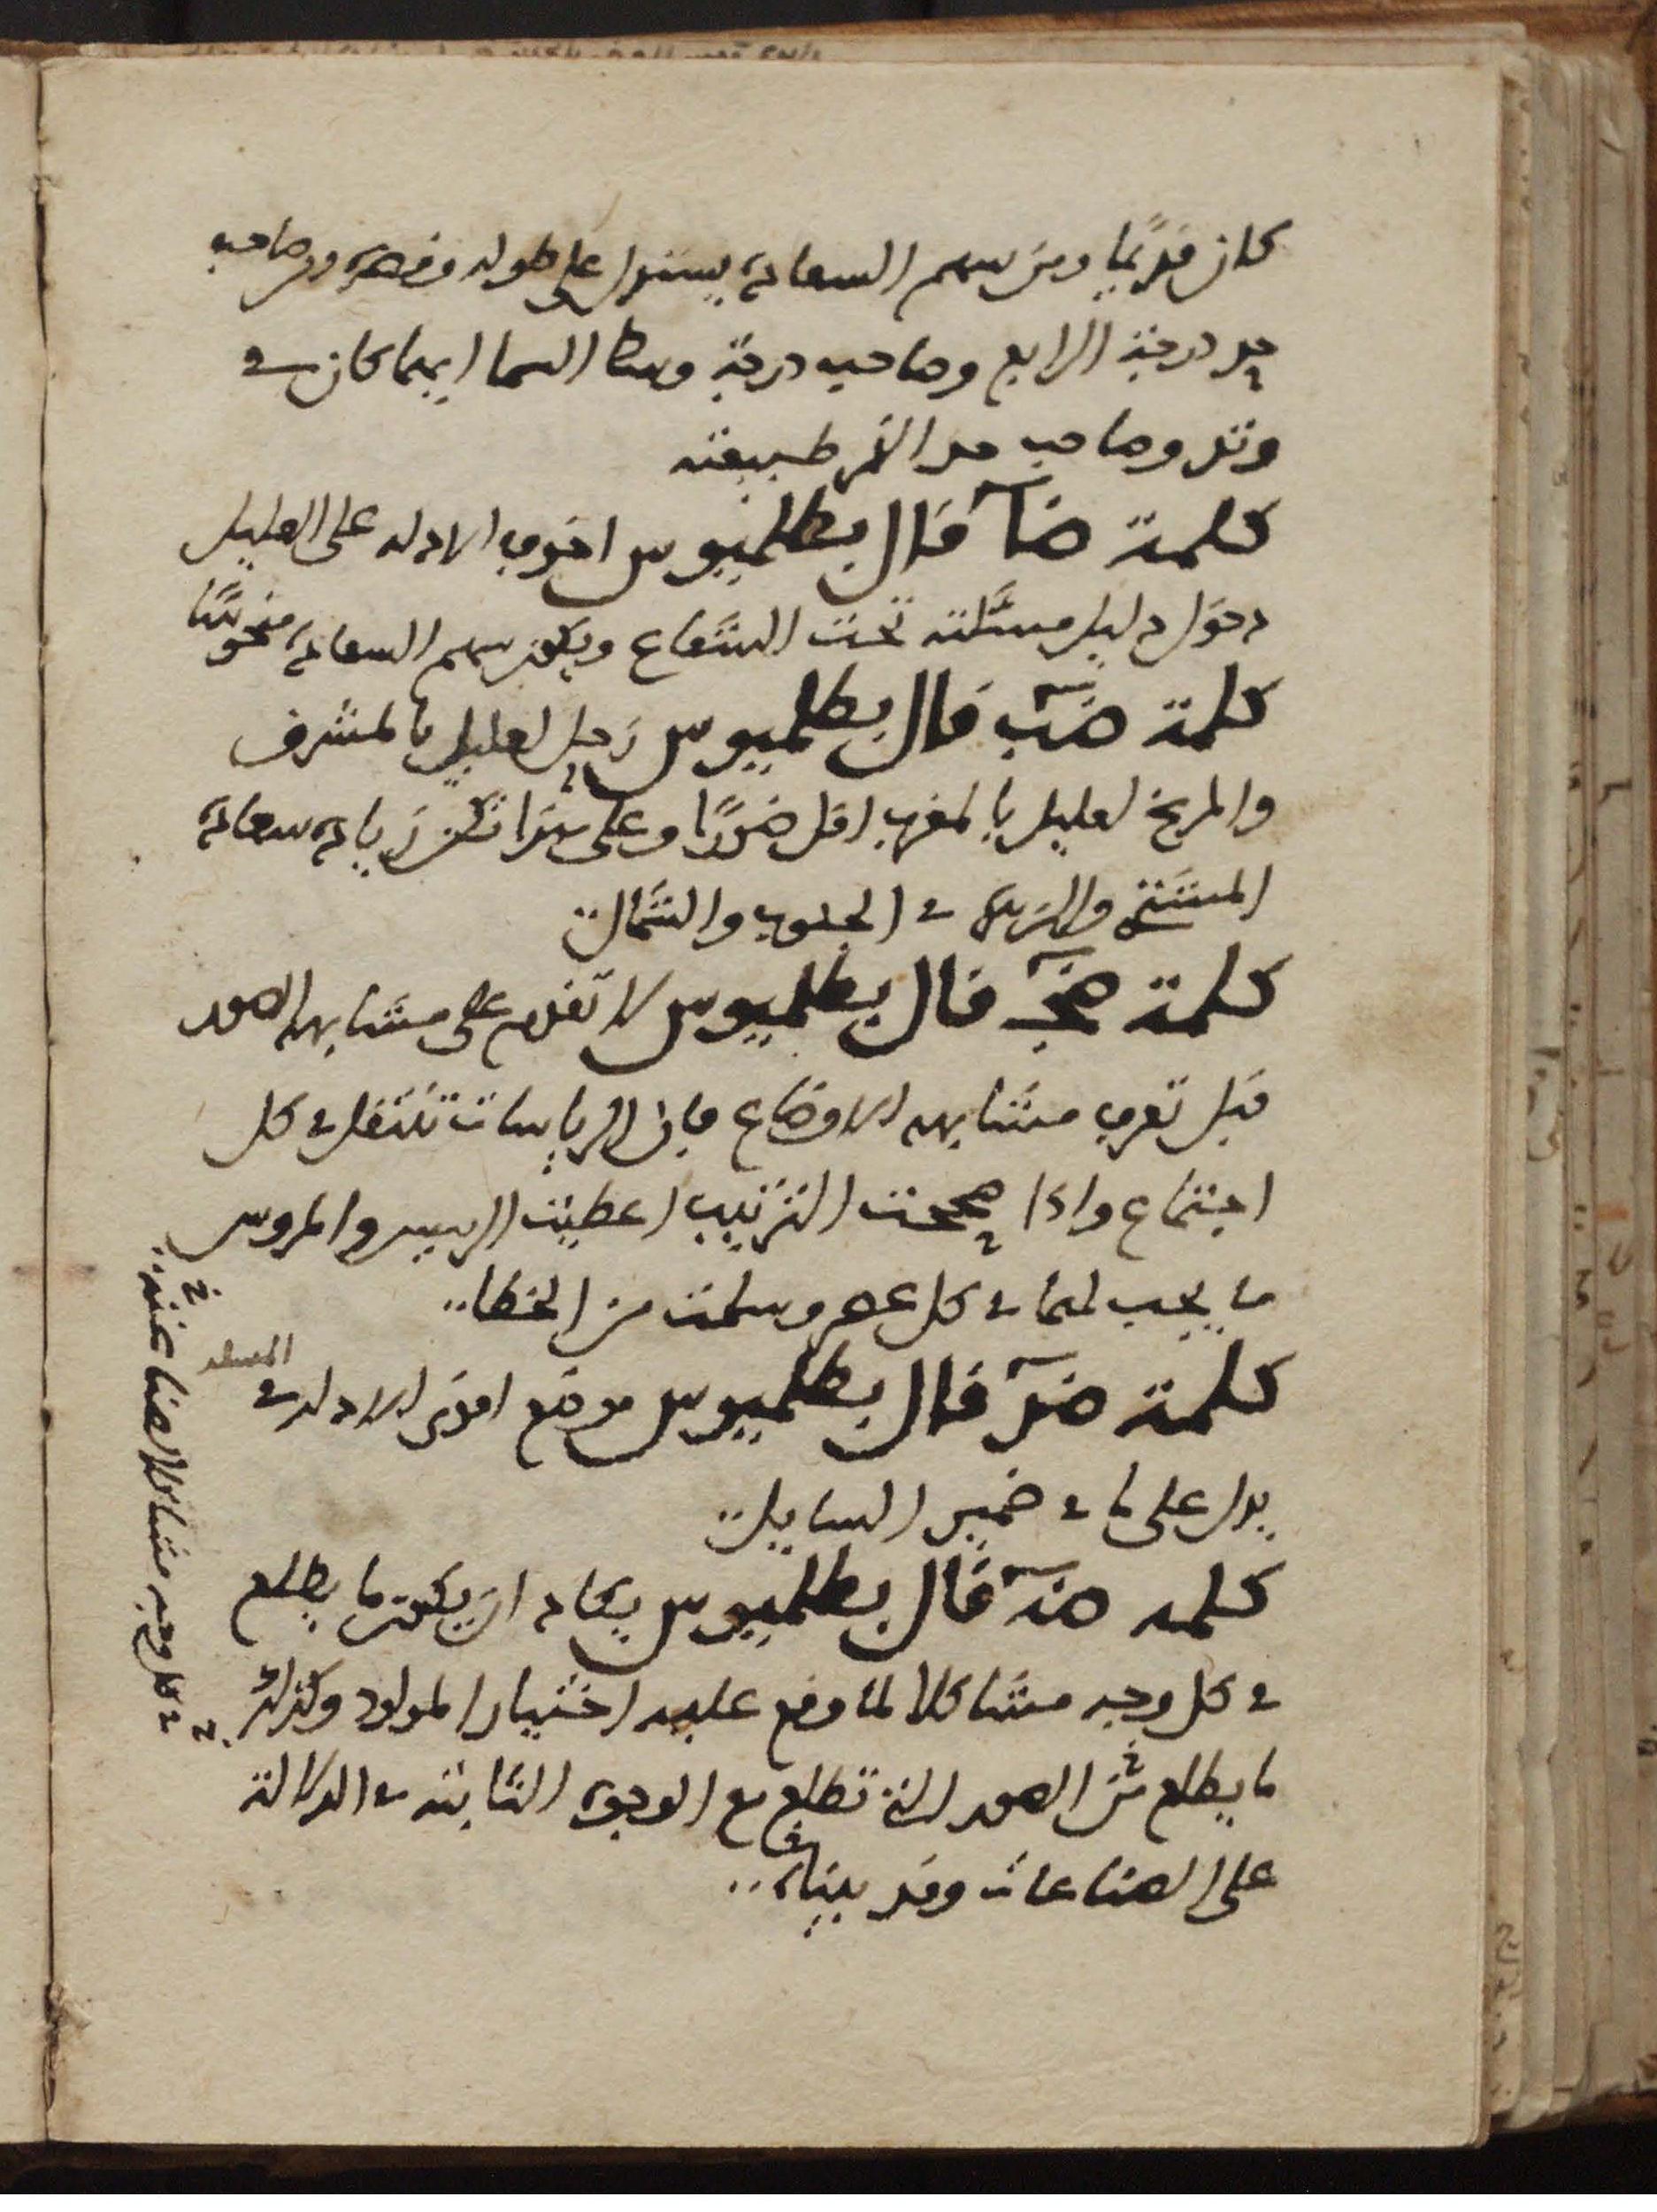 كان قديما ومن سهم السعادة يستدل على طوله وقصره ومن صاحب
حد درجة الرابع وصاحب درجة وسط السما ايهما كان في
وتد وصاحب حد القمر طبيعته
كلمة صآ قال بطلميوس اقوى الادله على العليل
دخول دليل مسئلته تحت الشعاع ويكون سهم السعادة منحوسًا
كلمة صب قال بطلميوس زحل لعليل بالمشرق
والمريخ لعليل بالمغرب اقل ضررًا وعلى هذا تكون زيادة سعادة
المشتري والزهرة في الجنوب والشمال
كلمة صج قال بطلميوس لا تقدم على مشابهه الصور
قبل تعرف مشابهه الاوضاع فان الرياسات تنتقل في كل
اجتماع واذا صححت الترتيب اعطيت الرييس والمروس
ما يجب لهما في كل عصر وسلمت من الخطا
كلمة صد قال بطلميوس موضع اقوى الادله في المسله
يدل على ما في ضمير السايل
كلمه صه قال بطلميوس يكاد ان يكون ما يطلع
في كل وجه مشاكلا لما وقع عليه اختيار المولود وكذلك
ما يطلع من الصور التي تطلع مع الوجوه الثابته في الدلالة
على الصناعات وقد بيناه
في كل وجه مشاكلا لصناعته